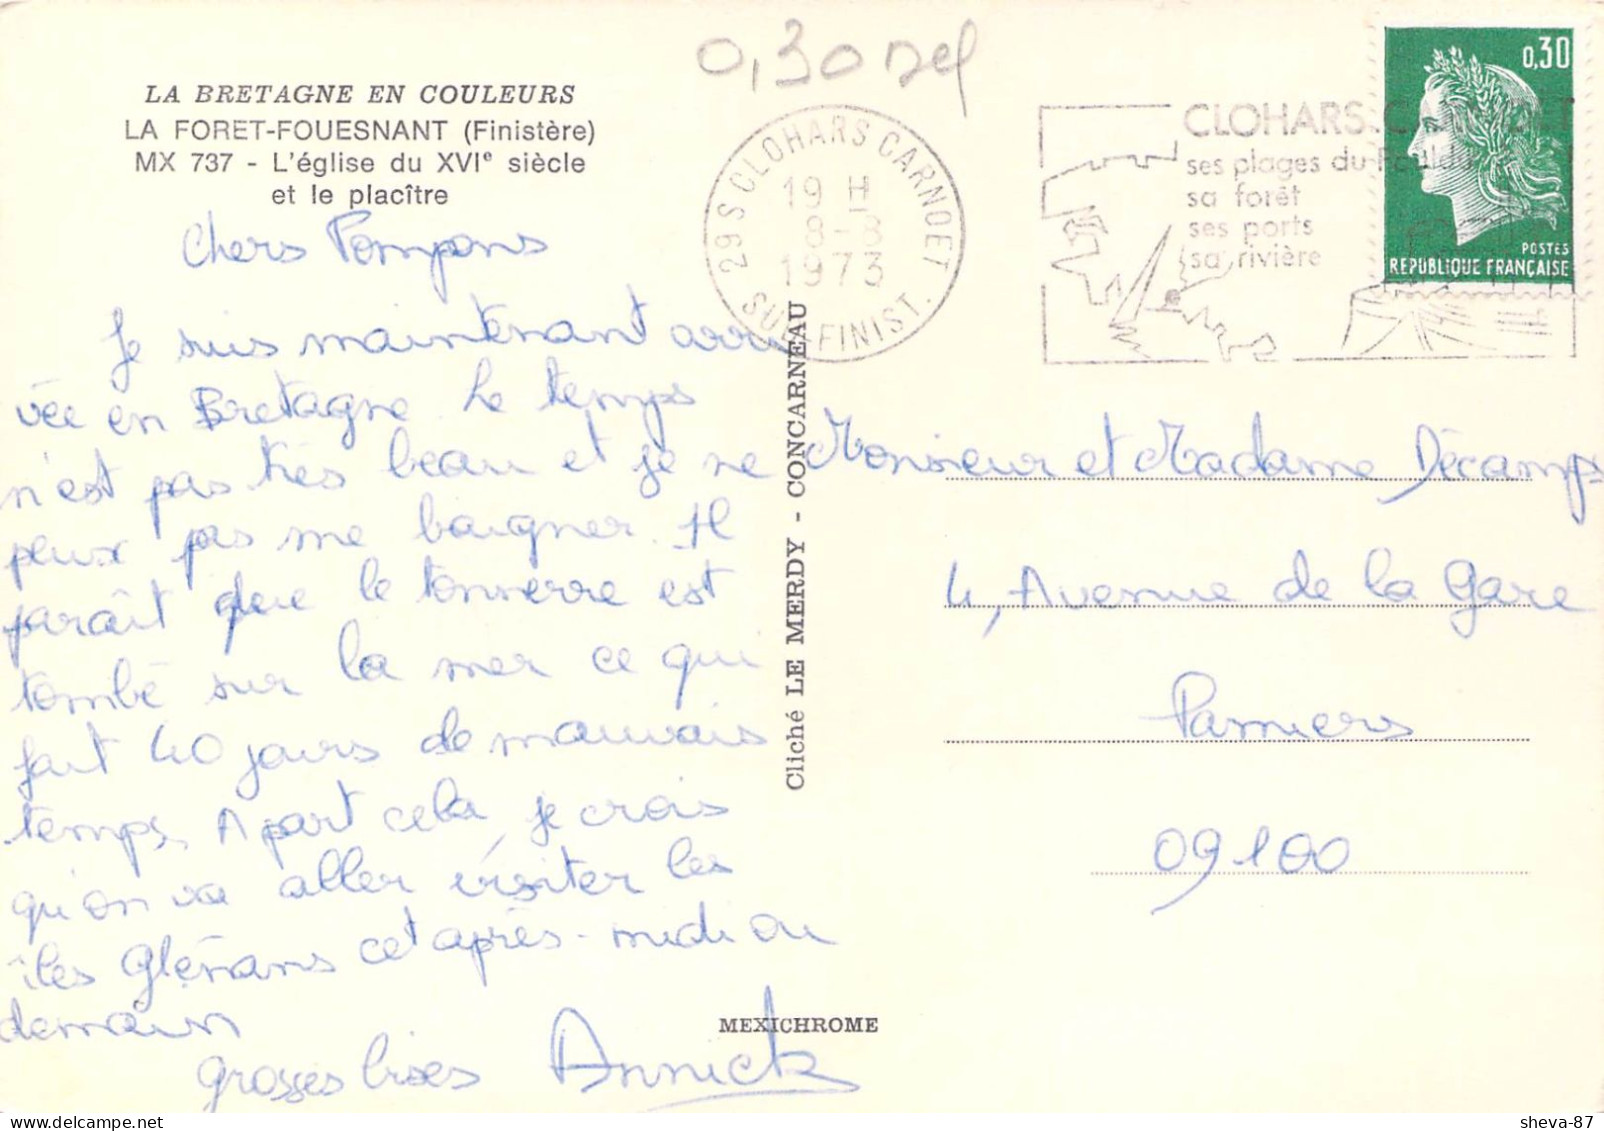 0,30 del
LA BRETAGNE EN COULEURS
LA FORET-FOUESNANT (Finistère)
MX 737 - L'église du XVIe siècle
et le placître
Chers Pompons
Je suis maintenant arri
vée en Bretagne. Le temps
n'est pas très beau et je ne
peux pas me baigner. Il
paraît que le tonnerre est
tombé sur la mer ce qui
fait 40 jours de mauvais
temps. A part cela, je crois
qu'on va aller visiter les
îles Glénans cet après-midi ou
demain
grosses bises Annick
Cliché LE MERDY - CONCARNEAU
MEXICHROME
29 S CLOHARS CARNOET
19 H
8-8
1973
SUD-FINIST.
CLOHARS-CARNOET
ses plages du Pouldu
sa forêt
ses ports
sa rivière
0,30
POSTES
REPUBLIQUE FRANÇAISE
Monsieur et Madame Décamps
4, Avenue de la Gare
Pamiers
09100
sheva-87